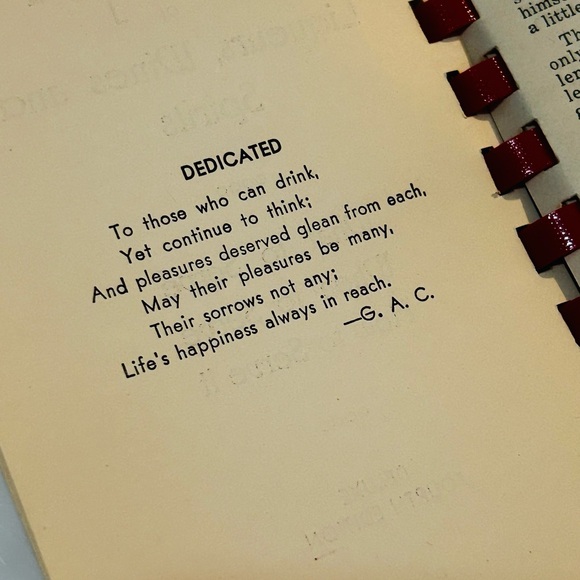 DEDICATED
To those who can drink,
Yet continue to think;
And pleasures deserved glean from each,
May their pleasures be many,
Their sorrows not any;
Life's happiness always in reach.
—G. A. C.
a little
Th
only